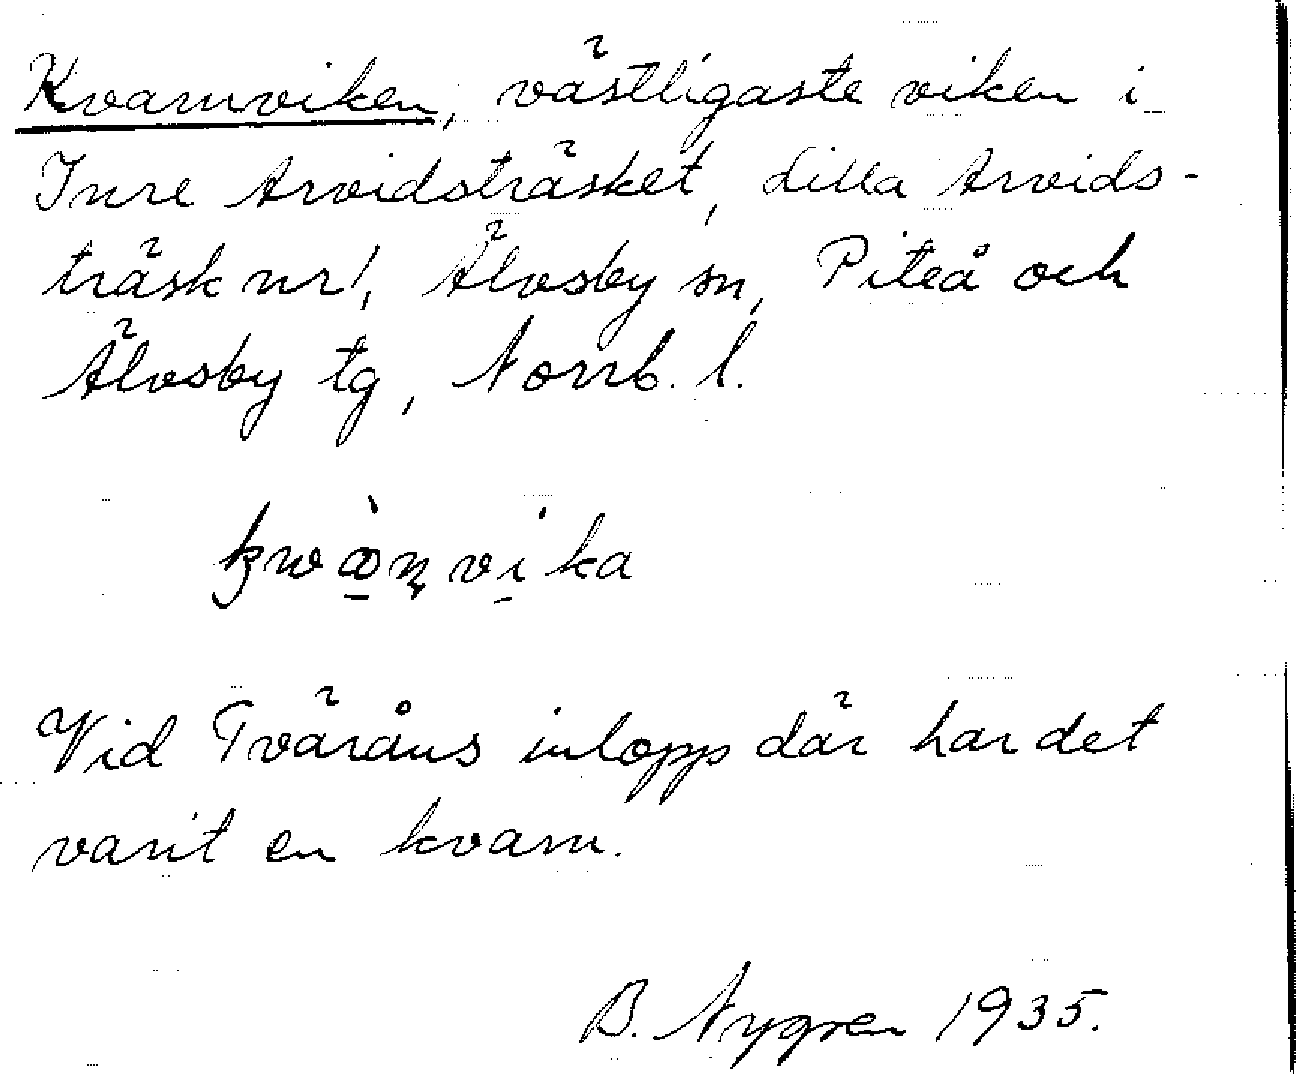 Kvarnviken, västligaste viken i
Inre Arvidsträsket, Lilla Arvids-
träsk nr 1, Älvsby sn, Piteå och
Älvsby tg, Norrb. l.
vika
Vid Tväråns inlopp där har det
varit en kvarn.
B. Nygren 1935.